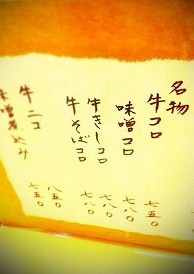 名物
牛コロ 七五〇
味噌コロ 七八〇
牛きしコロ 七八〇
牛そばコロ 七八〇
牛ニコ 八五〇
味噌煮込み 七五〇